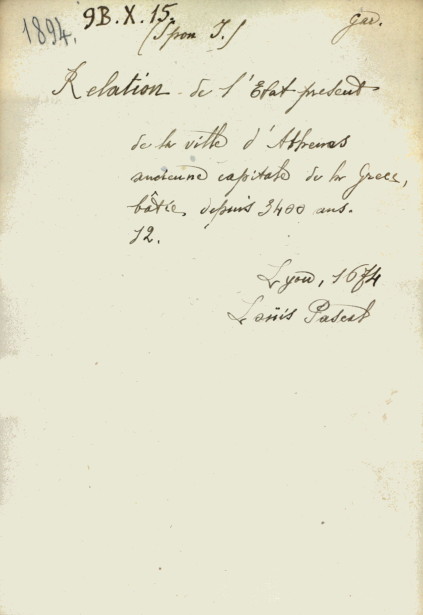 1894. 9B.X.15. gar.
(Spon J.)
Relation de l'Etat present
de la ville d'Athenes
ancienne capitale de la Grece,
bâtie depuis 3400 ans.
12.
Lyon, 1674
Loüis Pascal